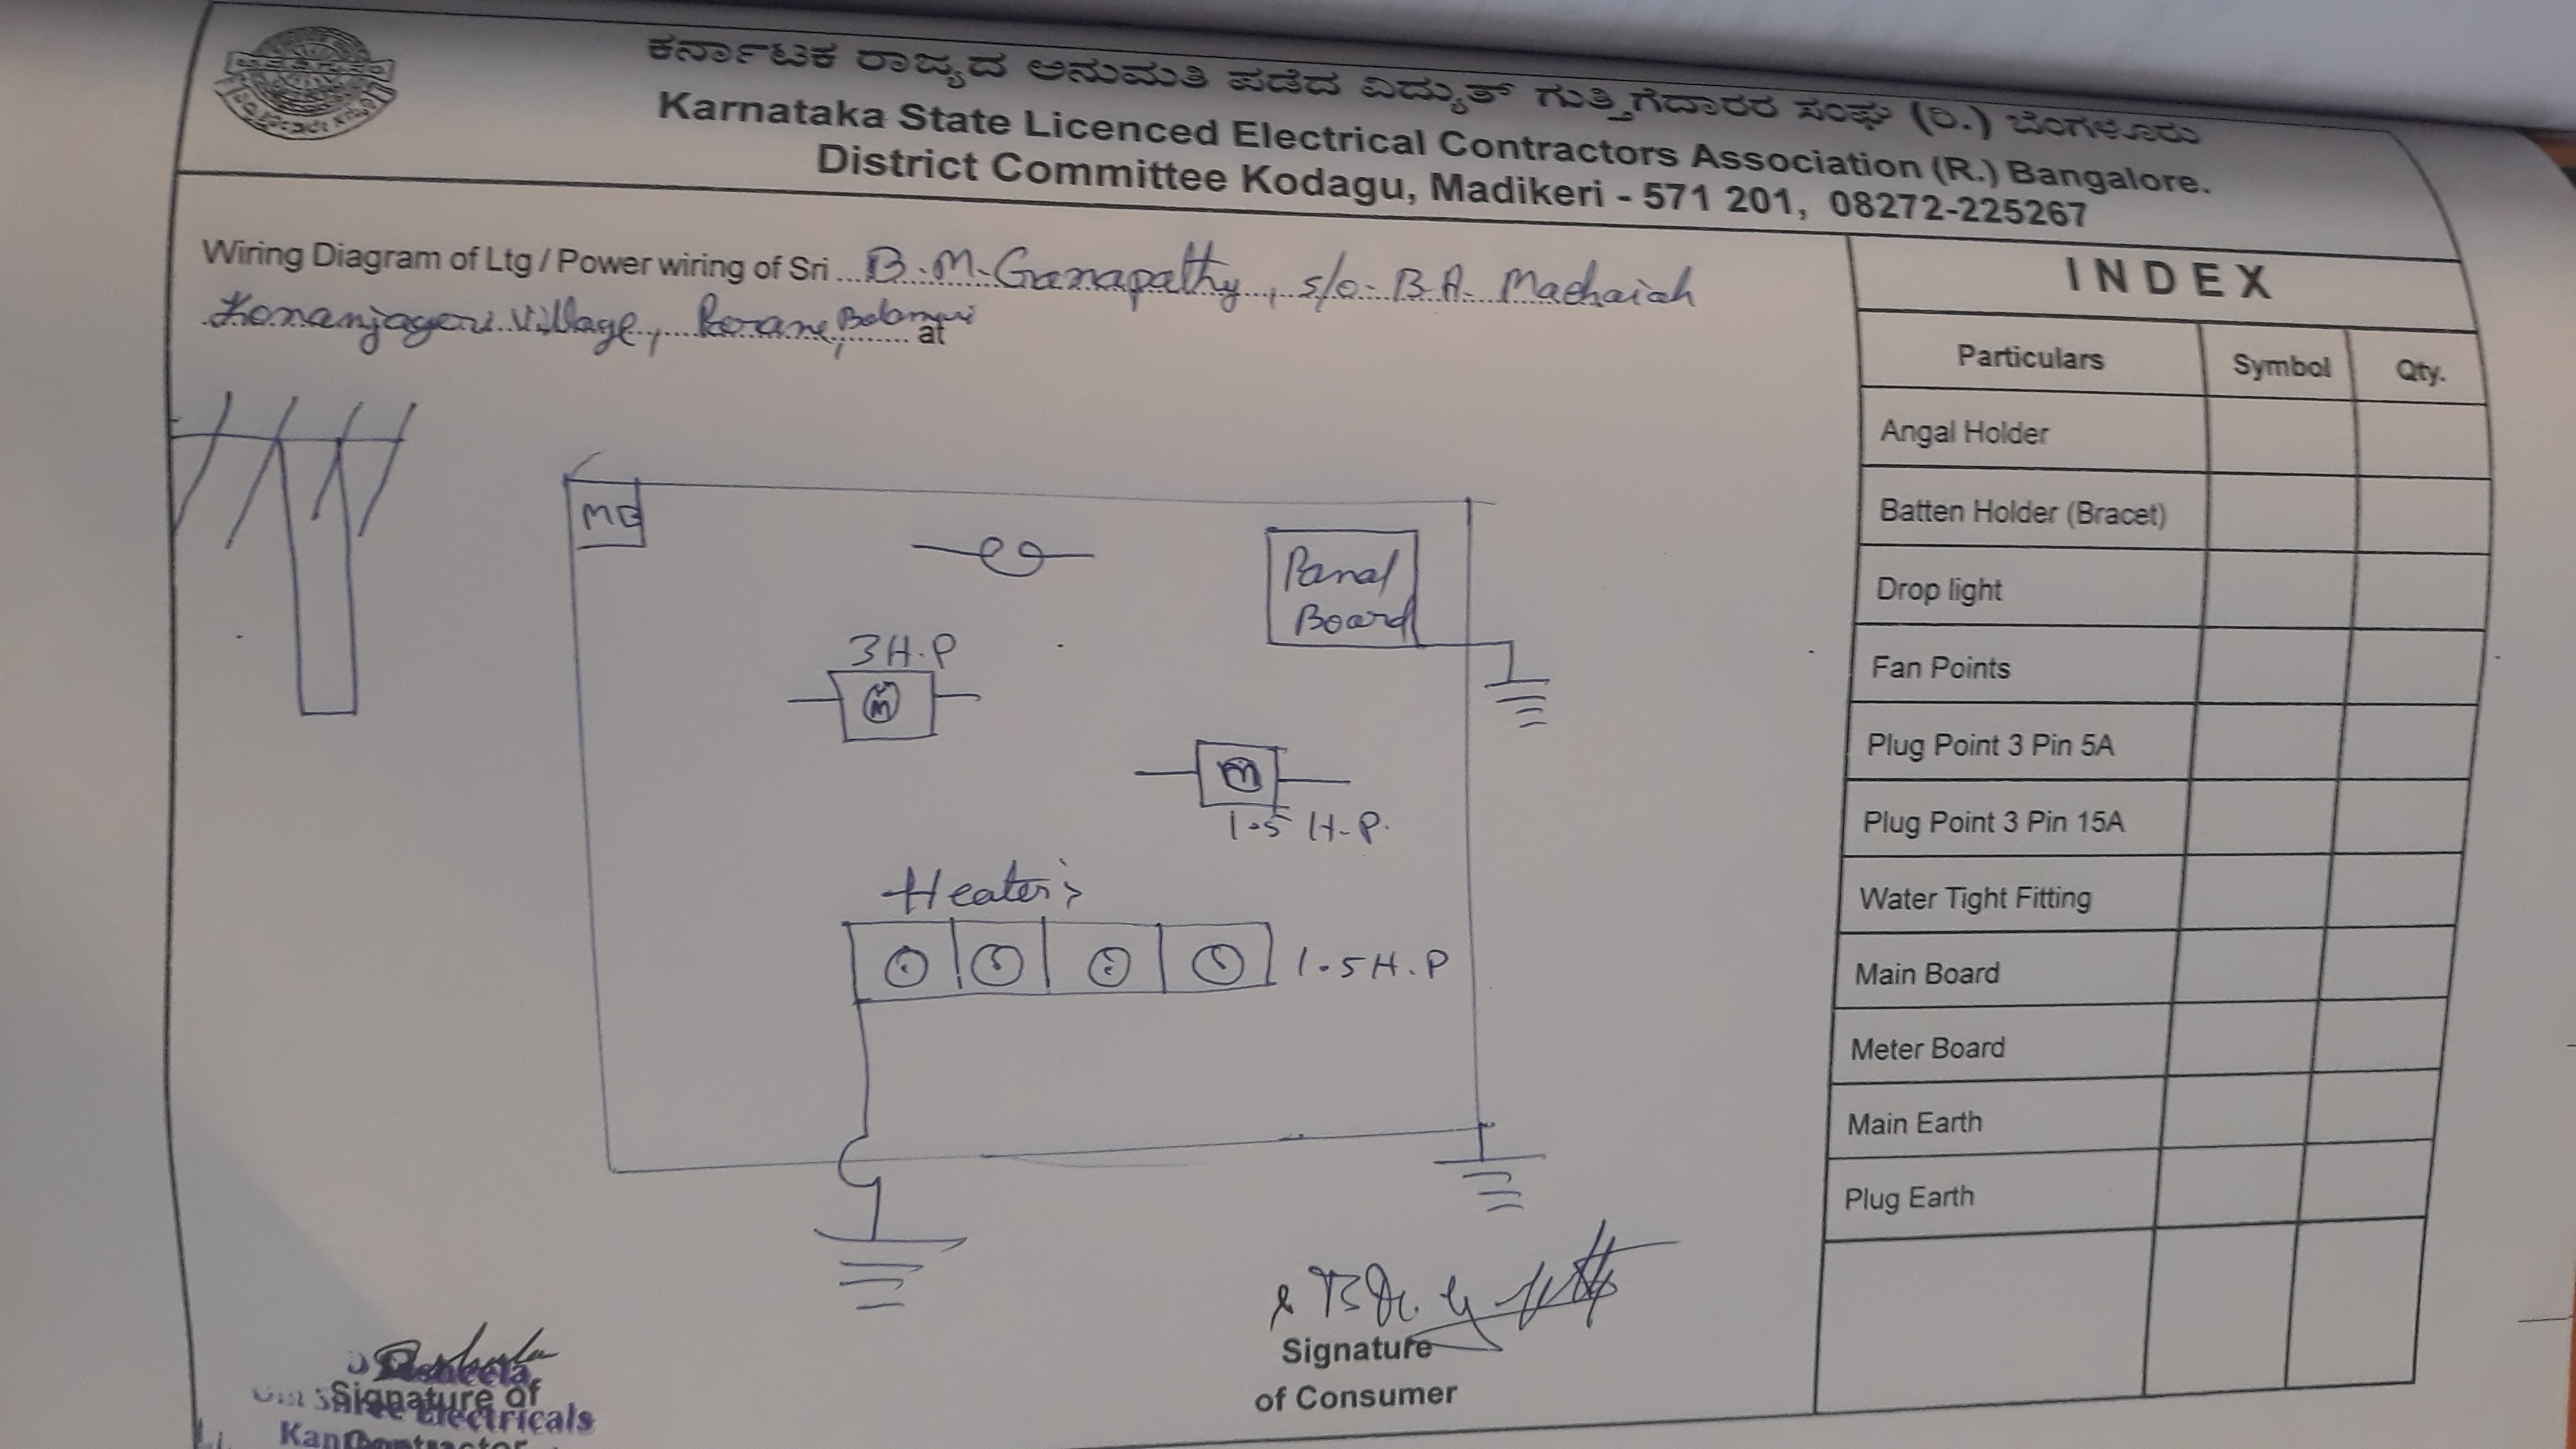 ಕರ್ನಾಟಕ ರಾಜ್ಯದ ಅನುಮತಿ ಪಡೆದ ವಿದ್ಯುತ್ ಗುತ್ತಿಗೆದಾರರ ಸಂಘ (ರಿ.) ಬೆಂಗಳೂರು
Karnataka State Licenced Electrical Contractors Association (R.) Bangalore.
District Committee Kodagu, Madikeri - 571 201, 08272-225267
Wiring Diagram of Ltg / Power wiring of Sri B.M. Ganapathy, S/o. B.A. Machaiah
Konanjageri Village, at
MB
Panal
Board
3 H.P
M
M
1.5 H.P.
Heater
1.5 H.P
INDEX
Particulars Symbol Qty.
Angal Holder
Batten Holder (Bracet)
Drop light
Fan Points
Plug Point 3 Pin 5A
Plug Point 3 Pin 15A
Water Tight Fitting
Main Board
Meter Board
Main Earth
Plug Earth
Signature
of Consumer
Signature of
Electricals
Contractor